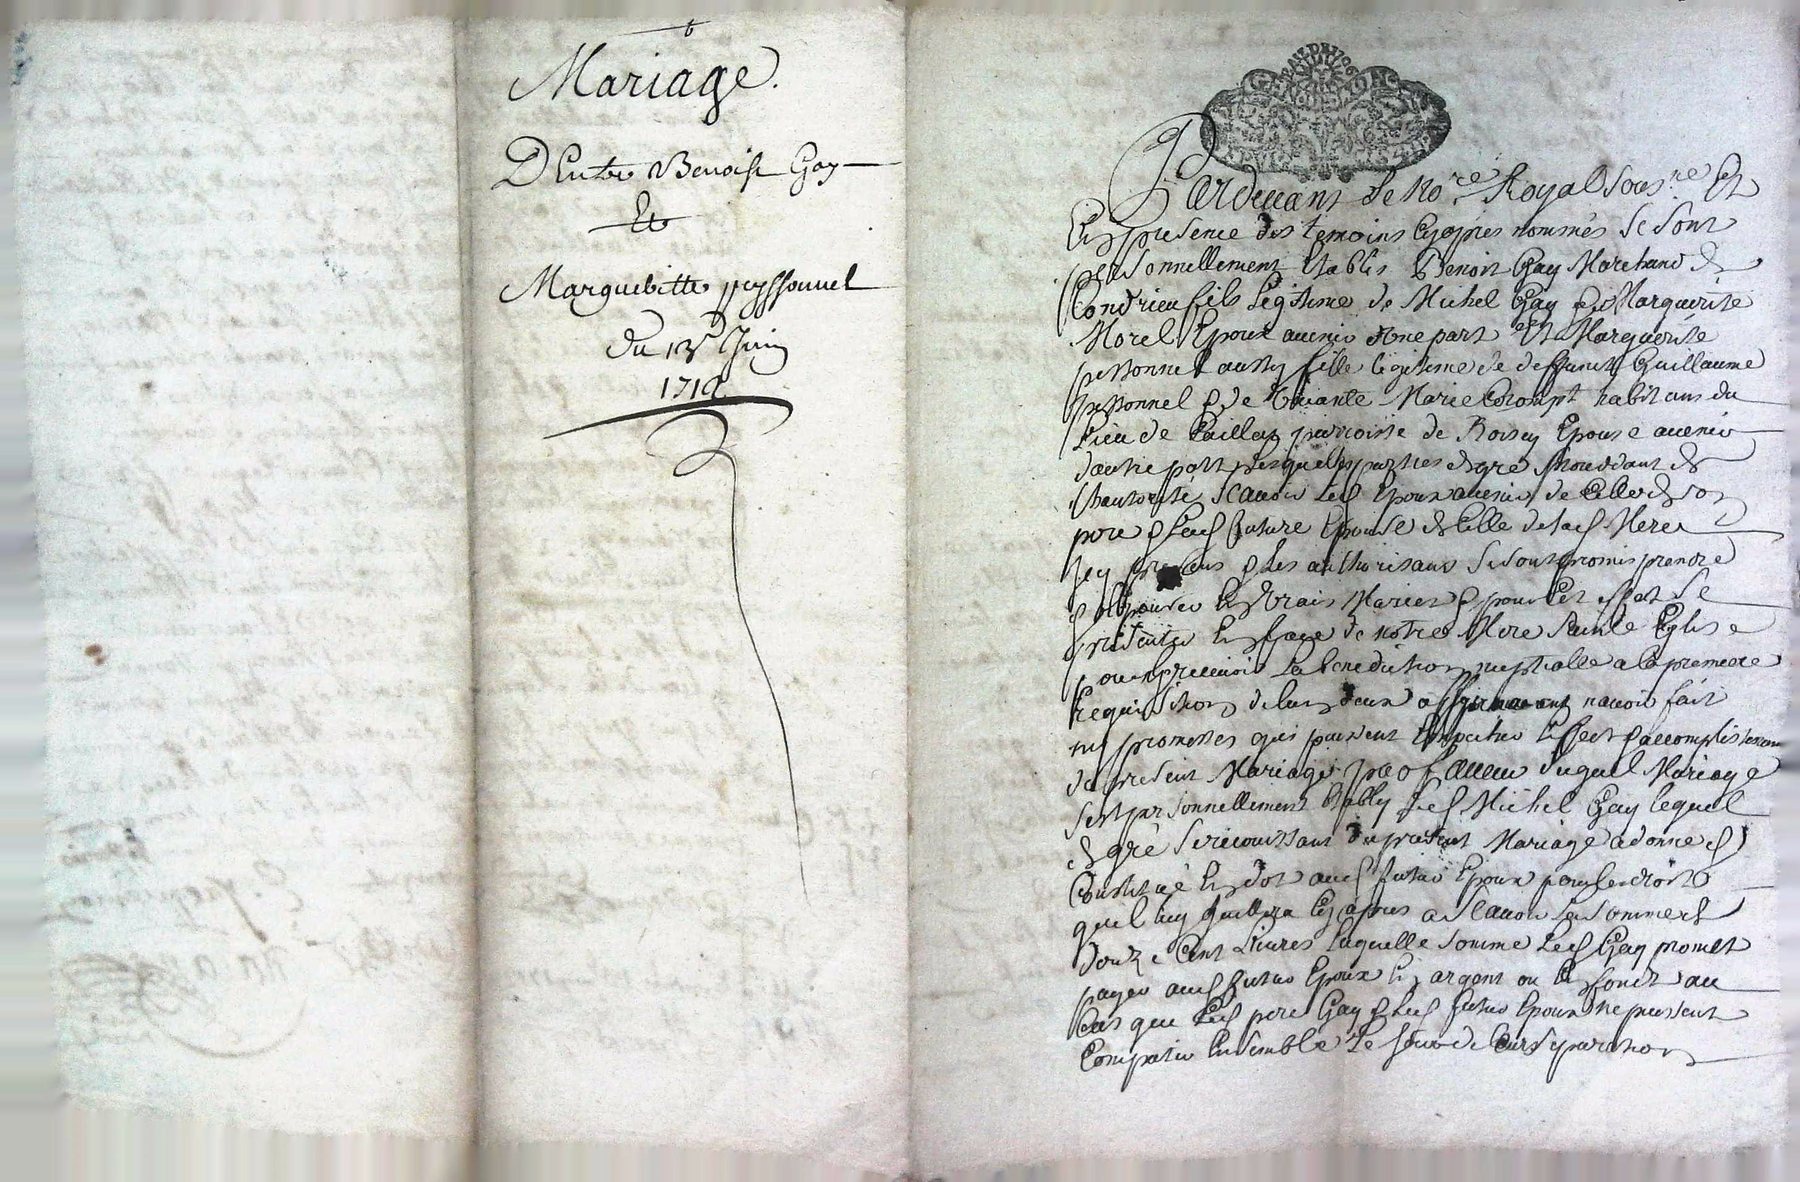 Mariage.
D'Entre Benoist Gay
Et
Margueritte peyssonnel
du 13e Juin
171
Pardevant Le No.re Royal sous.ne Et
En presence des temoins Cy apres nommés Se sont
personnellement Etablis Benoit Gay Marchand de
Condrieu fils Legitime de Michel Gay & de Marguerite
Morel Epoux avenir d'une part Et Marguerite
pessonnel aussy fille legitime de deffunct Guillaume
pessonnel & de vivante Marie Colompt habitans du
Lieu de parroisse de Roisey Epouse avenir
d'autre part Lesquelles parties de gré procedant de
L'hautorité Scavoir Led Epoux avenir de Celle de son
pere & Lad future Epouse de Celle de lad Mere
Icy presens & Les authorisans Se sont promis prendre
& Epouser En vrais Maries & pour Cet effet Se
presenter En face de notre Mere Sainte Eglise
pour y recevoir La benediction nuptialle a la premiere
requisition de l'un d'eux affirmant n'avoir fait
ny promesses qui puissent Empecher L'effect & accomplissement
du present Mariage En faveur duquel Mariage
s'est personnellement Etably Led. Michel Gay lequel
de gré Se rejouissant du present Mariage a donné &
Constitué En dot aud futur Epoux pour les droits
quel luy Cy apres a Scavoir La somme de
douze Cent Livres Laquelle somme Led Gay promet
payer aud futur Epoux En argent ou En fonds au
Cas que Led pere Gay & Led futur Epoux ne puissent
Compatir Ensemble Le Jour de Leur Separation